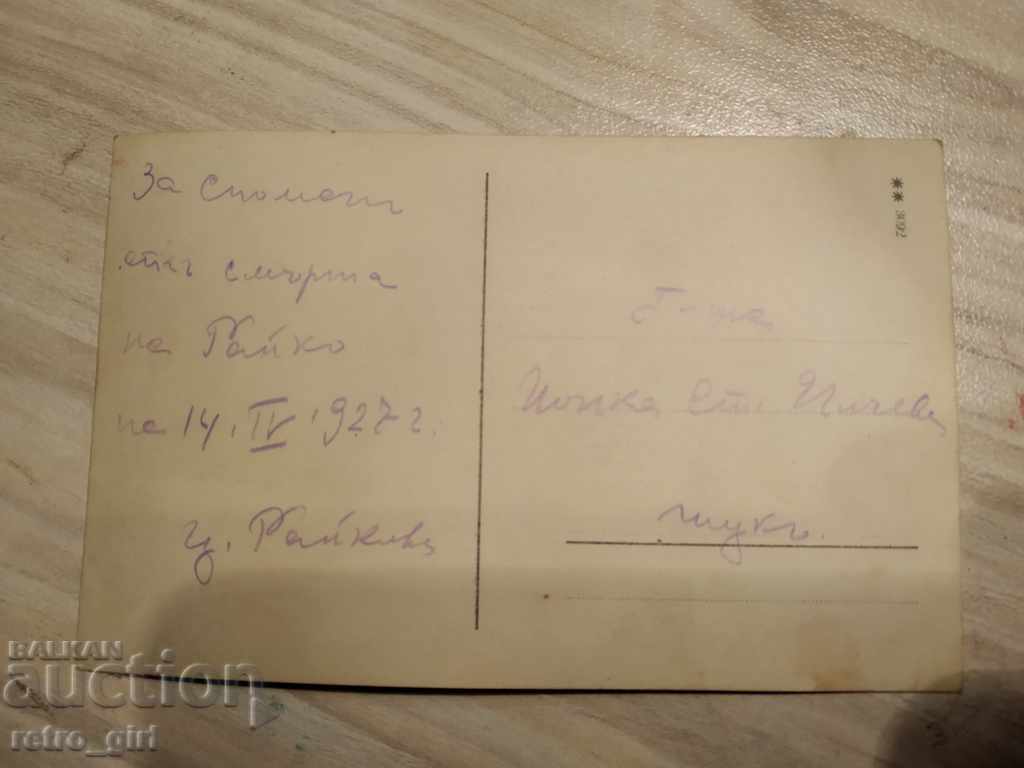 За спомен
отъ смърта
на Райко
на 14. IV 1927 г.
Ц. Райкова
Г-жа
Йонка Ст. Илчева
тукъ.
BALKAN
auction
retro_girl